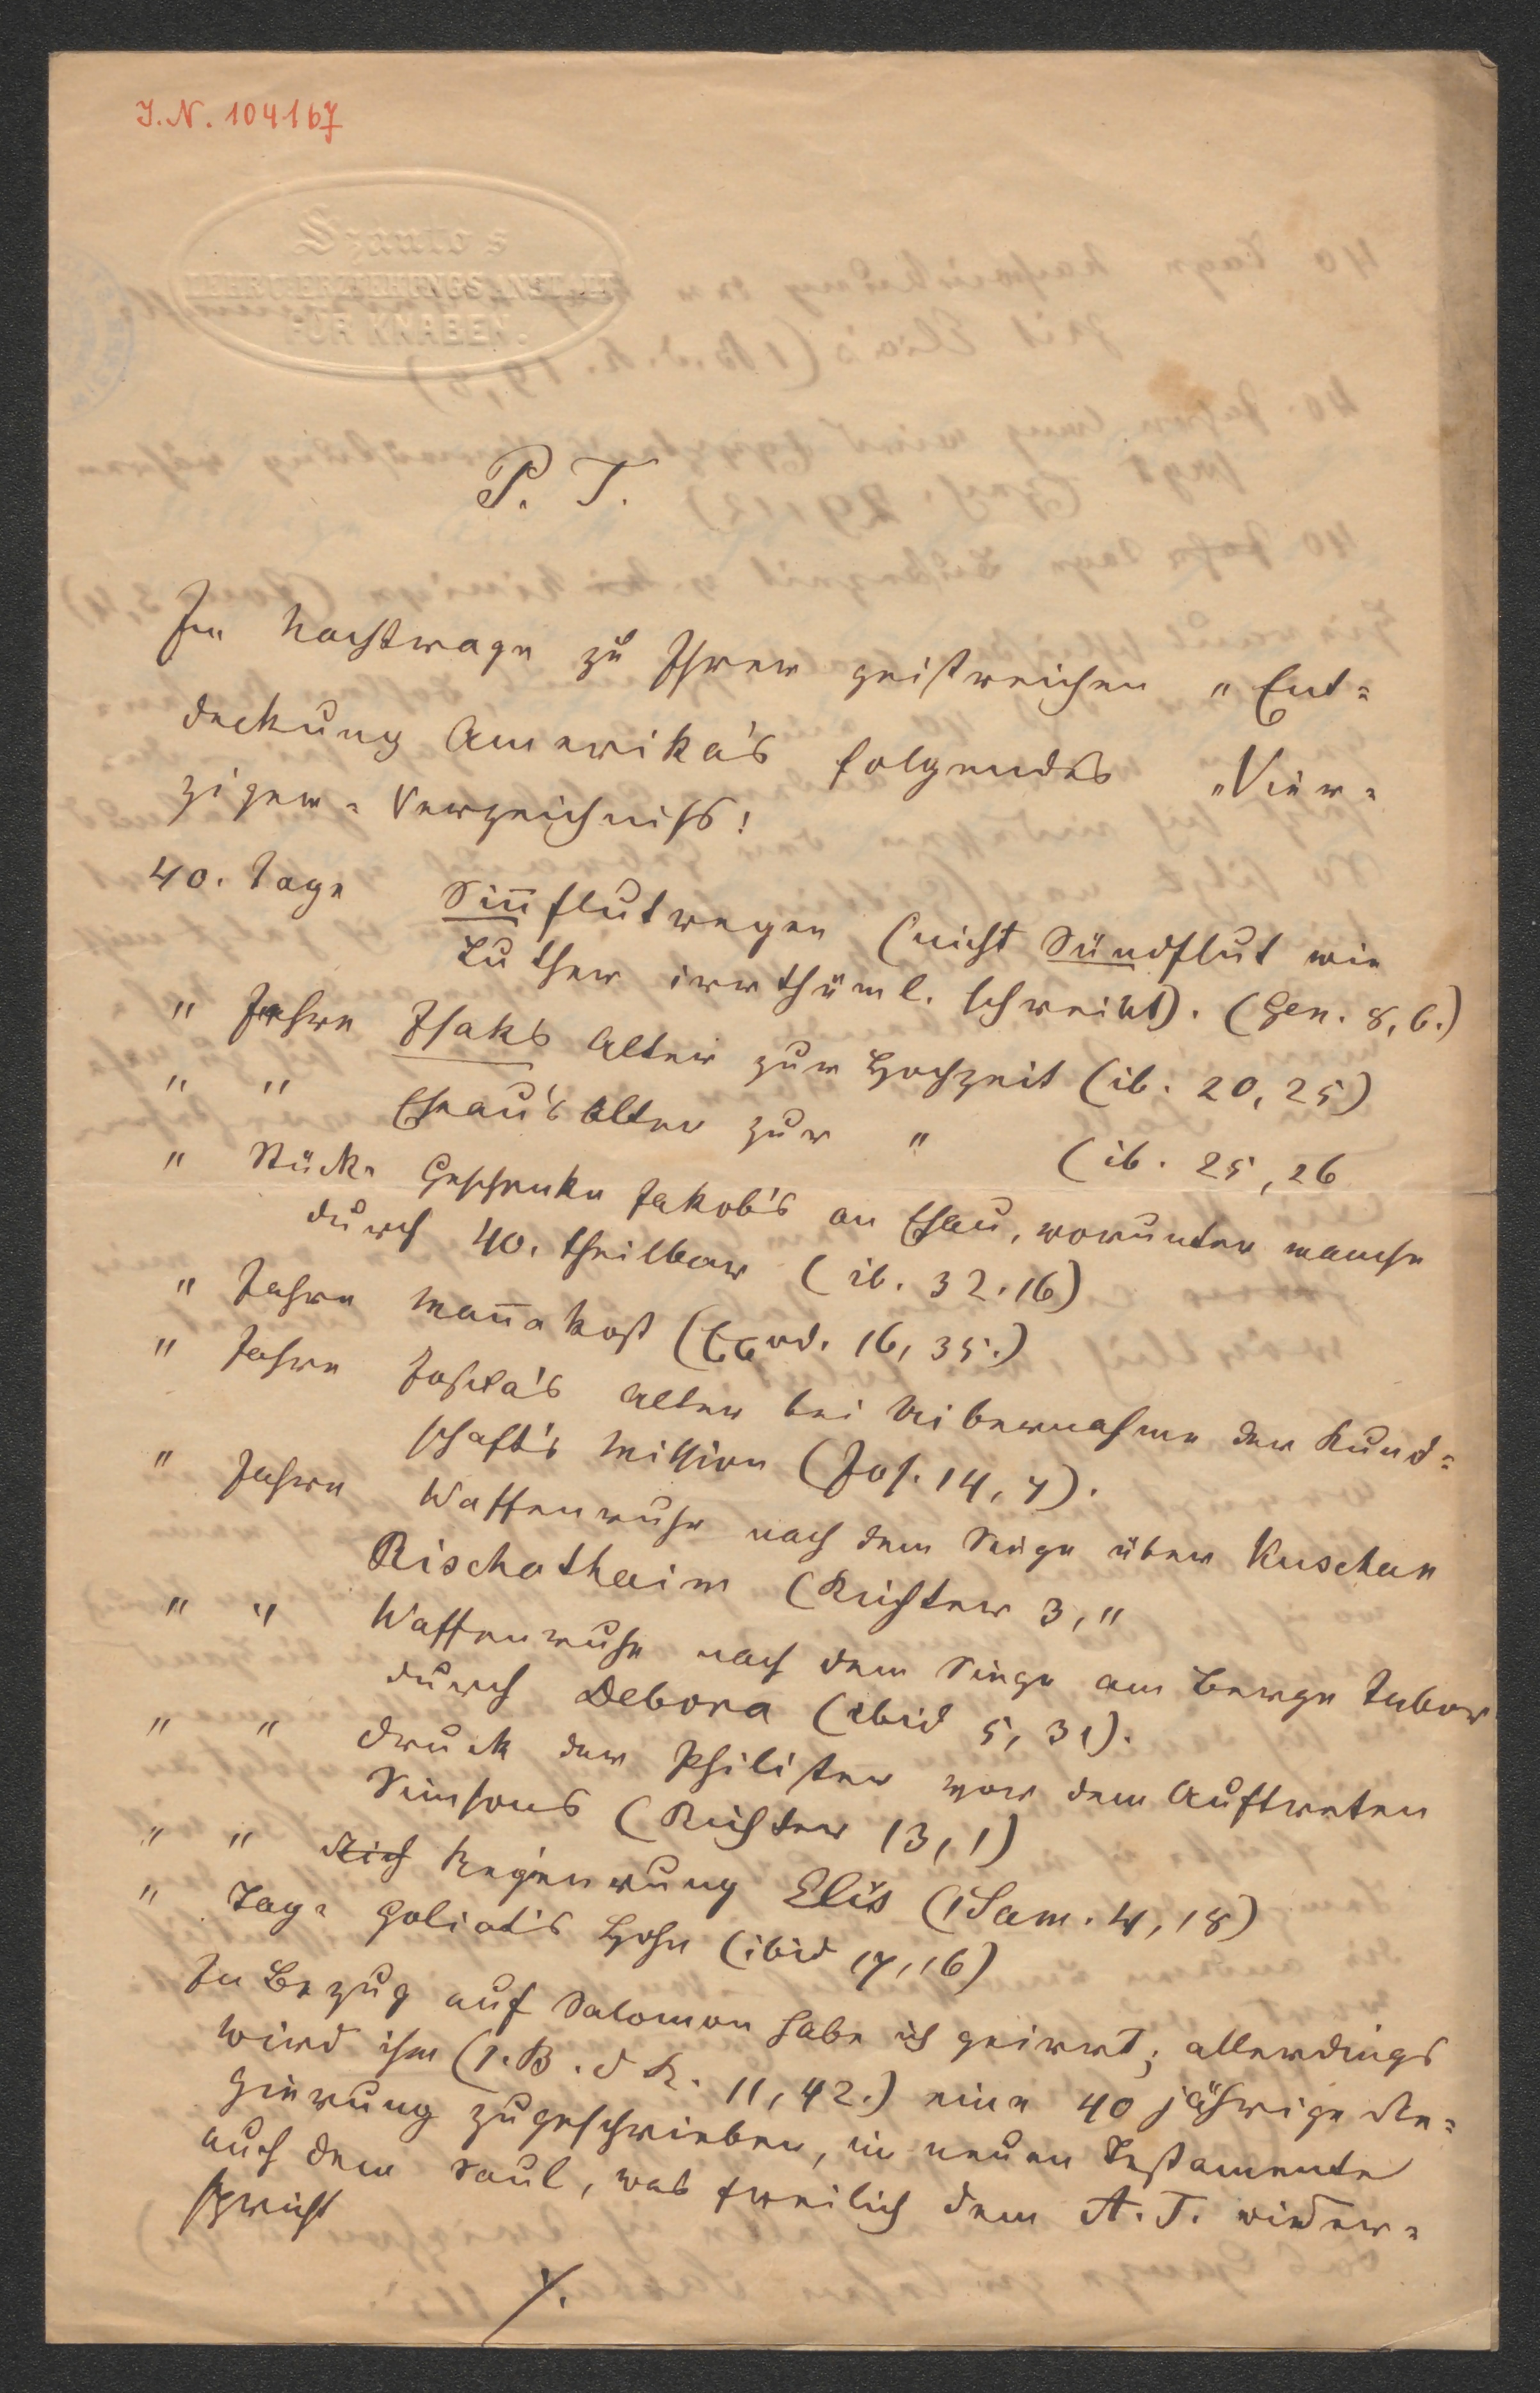 I.N. 104167
Szanto's
LEHR U. ERZIEHUNGSANSTALT
FÜR KNABEN.
P. T.
Im Nachtrage zu Ihrer geistreichen „Ent-
deckung Amerika's folgendes „Vier-
ziger-Verzeichniß!
40. Tage Sin̄flutregen (nicht Sündflut wie
Luther irrthüml. schreibt). (Gen. 8, 6.)
" Jahre Isaks Alter zur Hochzeit (ib. 20, 25)
" " Esau's Alter zur " (ib. 25, 26
" Stück Geschenke Jakob's an Esau, worunter manche
durch 40. theilbar (ib. 32. 16)
" Jahre Man̄akost (Exod. 16, 35.)
" Jahre Josua's Alter bei Uibernahme der Kund-
schaft's Mission (Jos. 14, 7).
" Jahre Waffenruhe nach dem Siege über Kuschan
Rischathaim (Richter 3, 11
" " Waffenruhe nach dem Siege am Berge Tabor
durch Debora (ibid 5, 31).
" " Druck der Philister vor dem Auftreten
Simsons (Richter 13, 1)
" " Rich Regierung Elis (1 Sam. 4, 18)
" Tage Goliat's Hohn (ibid 17, 16)
In Bezug auf Salomon habe ich geirrt; allerdings
wird ihm (1. B. d K. 11, 42.) eine 40 jährige Re-
gierung zugeschrieben, im neuen Testamente
auch dem Saul, was freilich dem A. T. wider-
spricht
./.